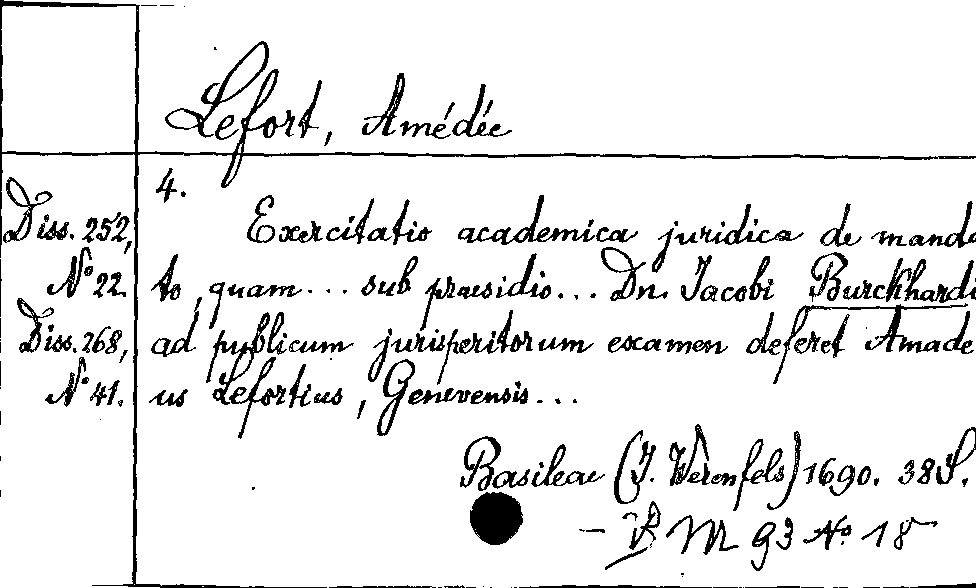 Lefort, Amédée
4.
Diss. 252, Exercitatio academica juridica de manda
No 22. to, quam... sub praesidio... Dn. Jacobi Burckhardi
Diss. 268, ad publicum jurisperitorum examen deferet Amade
No 41. us Lefortius, Genevensis...
Basileae (J. Werenfels) 1690. 38 S.
M 93 No 18